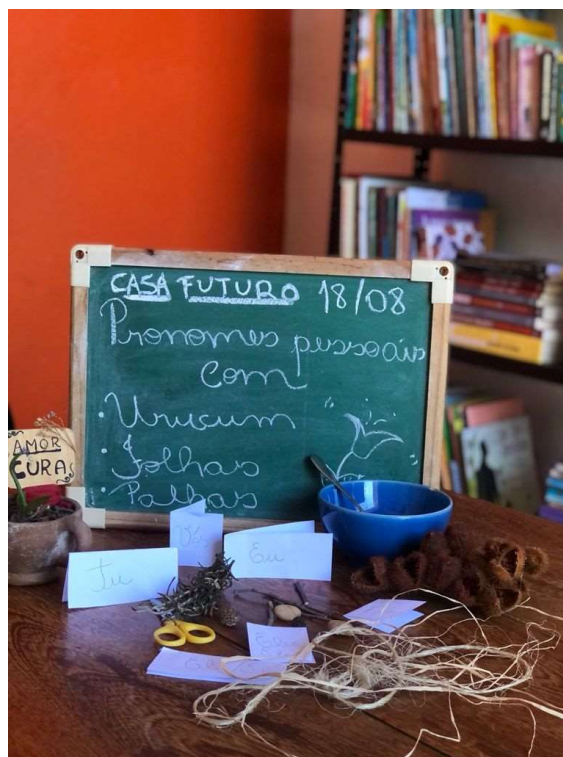 CASA FUTURO 18/08
Pronomes pessoais
com
• Urucum
• Folhas
Palhas
AMOR
CURA
Tu
Eu